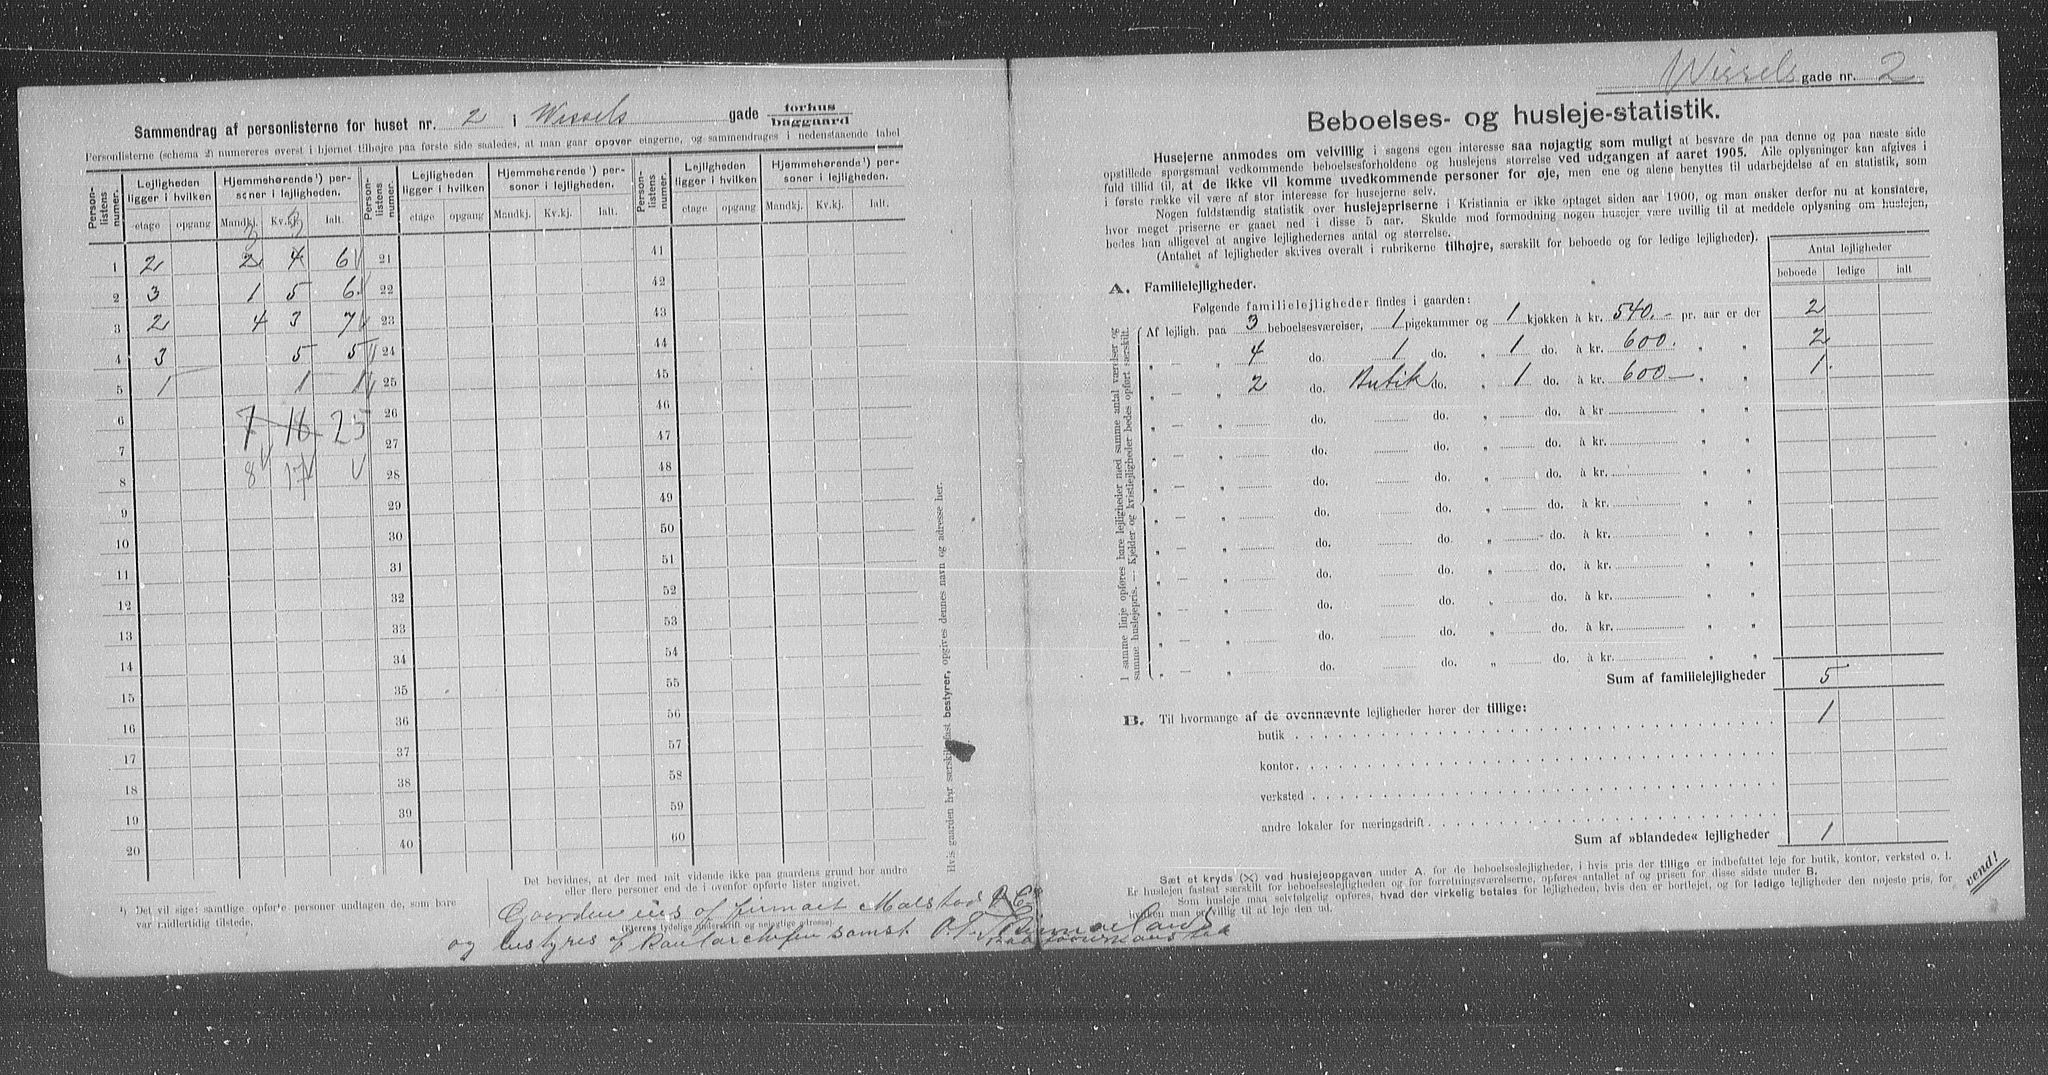 Sammendrag af personlisterne for huset nr. 2 i Wessels gade forhus baggaard
Personlisterne (schema 2) numereres øverst i hjørnet tilhøjre paa første side saaledes, at man gaar opover etagerne, og sammendrages i nedenstaaende tabel
Personlistens numer. Lejligheden ligger i hvilken Hjemmehørende¹) personer i lejligheden. Personlistens numer. Lejligheden ligger i hvilken Hjemmehørende¹) personer i lejligheden. Personlistens numer. Lejligheden ligger i hvilken Hjemmehørende¹) personer i lejligheden.
etage opgang Mandkj. Kv.kj. Ialt. etage opgang Mandkj. Kv.kj. Ialt. etage opgang Mandkj. Kv.kj. Ialt.
1 2 2 4 6 21 41
2 3 1 5 6 22 42
3 2 4 3 7 23 43
4 3 5 5 24 44
5 1 1 1 25 45
6 7 16 25 26 46
7 27 47
8 8 17 28 48
9 29 49
10 30 50
11 31 51
12 32 52
13 33 53
14 34 54
15 35 55
16 36 56
17 37 57
18 38 58
19 39 59
20 40 60
¹) Det vil sige: samtlige opførte personer undtagen de, som bare
var midlertidig tilstede.
Det bevidnes, at der med mit vidende ikke paa gaardens grund bor andre
eller flere personer end de i ovenfor opførte lister angivet.
Gaarden eies af firmaet
(Ejerens tydelige underskrift og nøjagtige adresse)
og bestyres af samt
Hvis gaarden har særskilt fast bestyrer, opgives dennes navn og adresse her.
Wessels gade nr. 2
Beboelses- og husleje-statistik.
Husejerne anmodes om velvillig i sagens egen interesse saa nøjagtig som muligt at besvare de paa denne og paa næste side
opstillede spørgsmaal vedkommende beboelsesforholdene og huslejens størrelse ved udgangen af aaret 1905. Alle oplysninger kan afgives i
fuld tillid til, at de ikke vil komme uvedkommende personer for øje, men ene og alene benyttes til udarbejdelse af en statistik, som
i første række vil være af stor interesse for husejerne selv.
Nogen fuldstændig statistik over huslejepriserne i Kristiania er ikke optaget siden aar 1900, og man ønsker derfor nu at konstatere,
hvor meget priserne er gaaet ned i disse 5 aar. Skulde mod formodning nogen husejer være uvillig til at meddele oplysning om huslejen,
bedes han alligevel at angive lejlighedernes antal og størrelse.
(Antallet af lejligheder skrives overalt i rubrikerne tilhøjre, særskilt for beboede og for ledige lejligheder).
Antal lejligheder
beboede ledige ialt
A. Familielejligheder.
Følgende familielejligheder findes i gaarden:
I samme linje opføres bare lejligheder med samme antal værelser og
samme huslejepris. — Kjelder og kvistlejligheder bedes opført særskilt.
Af lejligh. paa 3 beboelsesværelser, 1 pigekammer og 1 kjøkken à kr. 540.- pr. aar er der 2
„ — „ 4 do. 1 do. „ 1 do. à kr. 600. „ „ 2
„ — „ 2 do. Butik do. „ 1 do. à kr. 600— „ „ 1.
„ — „ do. do. „ do. à kr. „ „
„ — „ do. do. „ do. à kr. „ „
„ — „ do. do. „ do. à kr. „ „
„ — „ do. do. „ do. à kr. „ „
„ — „ do. do. „ do. à kr. „ „
„ — „ do. do. „ do. à kr. „ „
„ — „ do. do. „ do. à kr. „ „
„ — „ do. do. „ do. à kr. „ „
„ — „ do. do. „ do. à kr. „ „
Sum af familielejligheder 5
B. Til hvormange af de ovennævnte lejligheder hører der tillige:
butik 1
kontor
verksted
andre lokaler for næringsdrift
Sum af »blandede« lejligheder 1
Sæt et kryds (X) ved huslejeopgaven under A. for de beboelseslejligheder, i hvis pris der tillige er indbefattet leje for butik, kontor, verksted o. l.
Er huslejen fastsat særskilt for beboelseslejligheden og for forretningsværelserne, opføres antallet af og prisen for disse sidste under B.
Som husleje maa selvfølgelig opføres, hvad der virkelig betales for lejligheden, hvis den er bortlejet, og for ledige lejligheder den nøjeste pris, for
hvilken man er villig til at leje den ud.
vend!